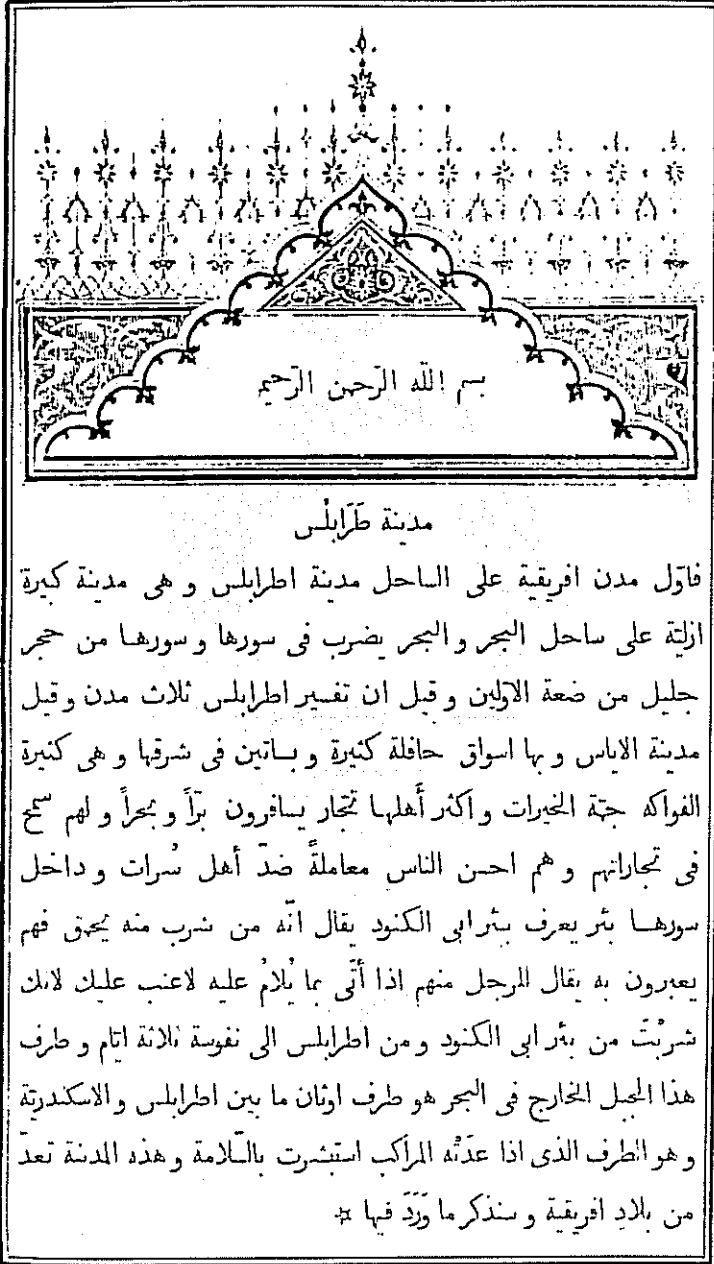 بسم اللّه الرّحمن الرّحيم
مدينة طَرَابلُس
فاوّل مدن افريقية على الساحل مدينة اطرابلس و هى مدينة كبيرة
ازليّة على ساحل البحر و البحر يضرب فى سورها و سورهـا من حجر
جليل من ضعة الاوّلين و قيل ان تفسير اطرابلس ثلاث مدن و قيل
مدينة الاياس و بها اسواق حافلة كثيرة و بساتين فى شرقها و هى كثيرة
الفواكه جمّة الخيرات و اكثر أهلهـا تجّار يسافرون برّاً و بحراً و لهم سمح
فى تجاراتهم و هم احسن الناس معاملةً ضدّ أهل سُرات و داخل
سورهــا بئر يعرف ببئر ابى الكنود يقال انّه من شرب منه يحمق فهم
يعبرون به يقال للرجل منهم اذا أَتَى بما يُلامُ عليه لاعتب عليك لانك
شربْتَ من بئر ابى الكنود و من اطرابلس الى نفوسة ثلاثة ايّام و طرف
هذا الجبل الخارج فى البحر هو طرف اوثان ما بين اطرابلس و الاسكندريّة
و هو الطرف الذى اذا عدّتْه المراكب استبشرت بالسّلامة و هذه المدينة تعدّ
من بلادِ افريقية و سنذكر ما وَرَدَ فيها ¤